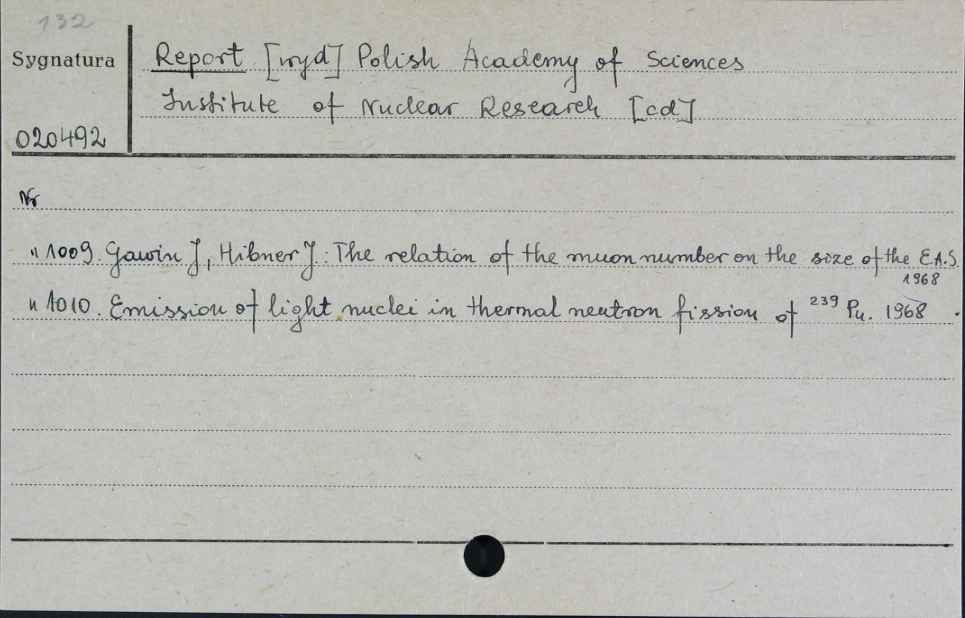 132
Sygnatura
020492
Report [wyd] Polish Academy of Sciences
Institute of Nuclear Research [cd]
Nr
" 1009. Gawin J, Hibner J: The relation of the muon number on the size of the E.A.S.
1968
" 1010. Emission of light nuclei in thermal neutron fission of ²³⁹ Pu. 1968.